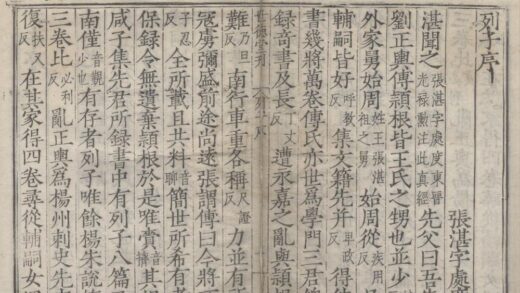 列子序
張湛字處度
湛聞之張湛字處度東晉光祿勳注此真經先父曰吾
劉正輿傅穎根皆王氏之甥也並少
外家舅始周姓王張湛祖之舅始周從疾用反
輔嗣皆好呼教反集文籍先并卑政反得
書幾將萬卷傅氏亦世為學門三君
錄奇書及長丁丈反遭永嘉之亂與穎
難乃旦反南行車重各稱尺證反力並有
列子序
寇虜彌盛前途尚遠張謂傅曰今將
子忍反全所載且共料音聊簡世所希有
保錄令無遺棄穎根於是唯賫音其
咸子集先君所錄書中有列子八篇
南僅音覲少也有存者列子唯餘楊朱說
三卷比必利反亂正輿為楊州刺史先
復扶又反在其家得四卷尋從輔嗣女